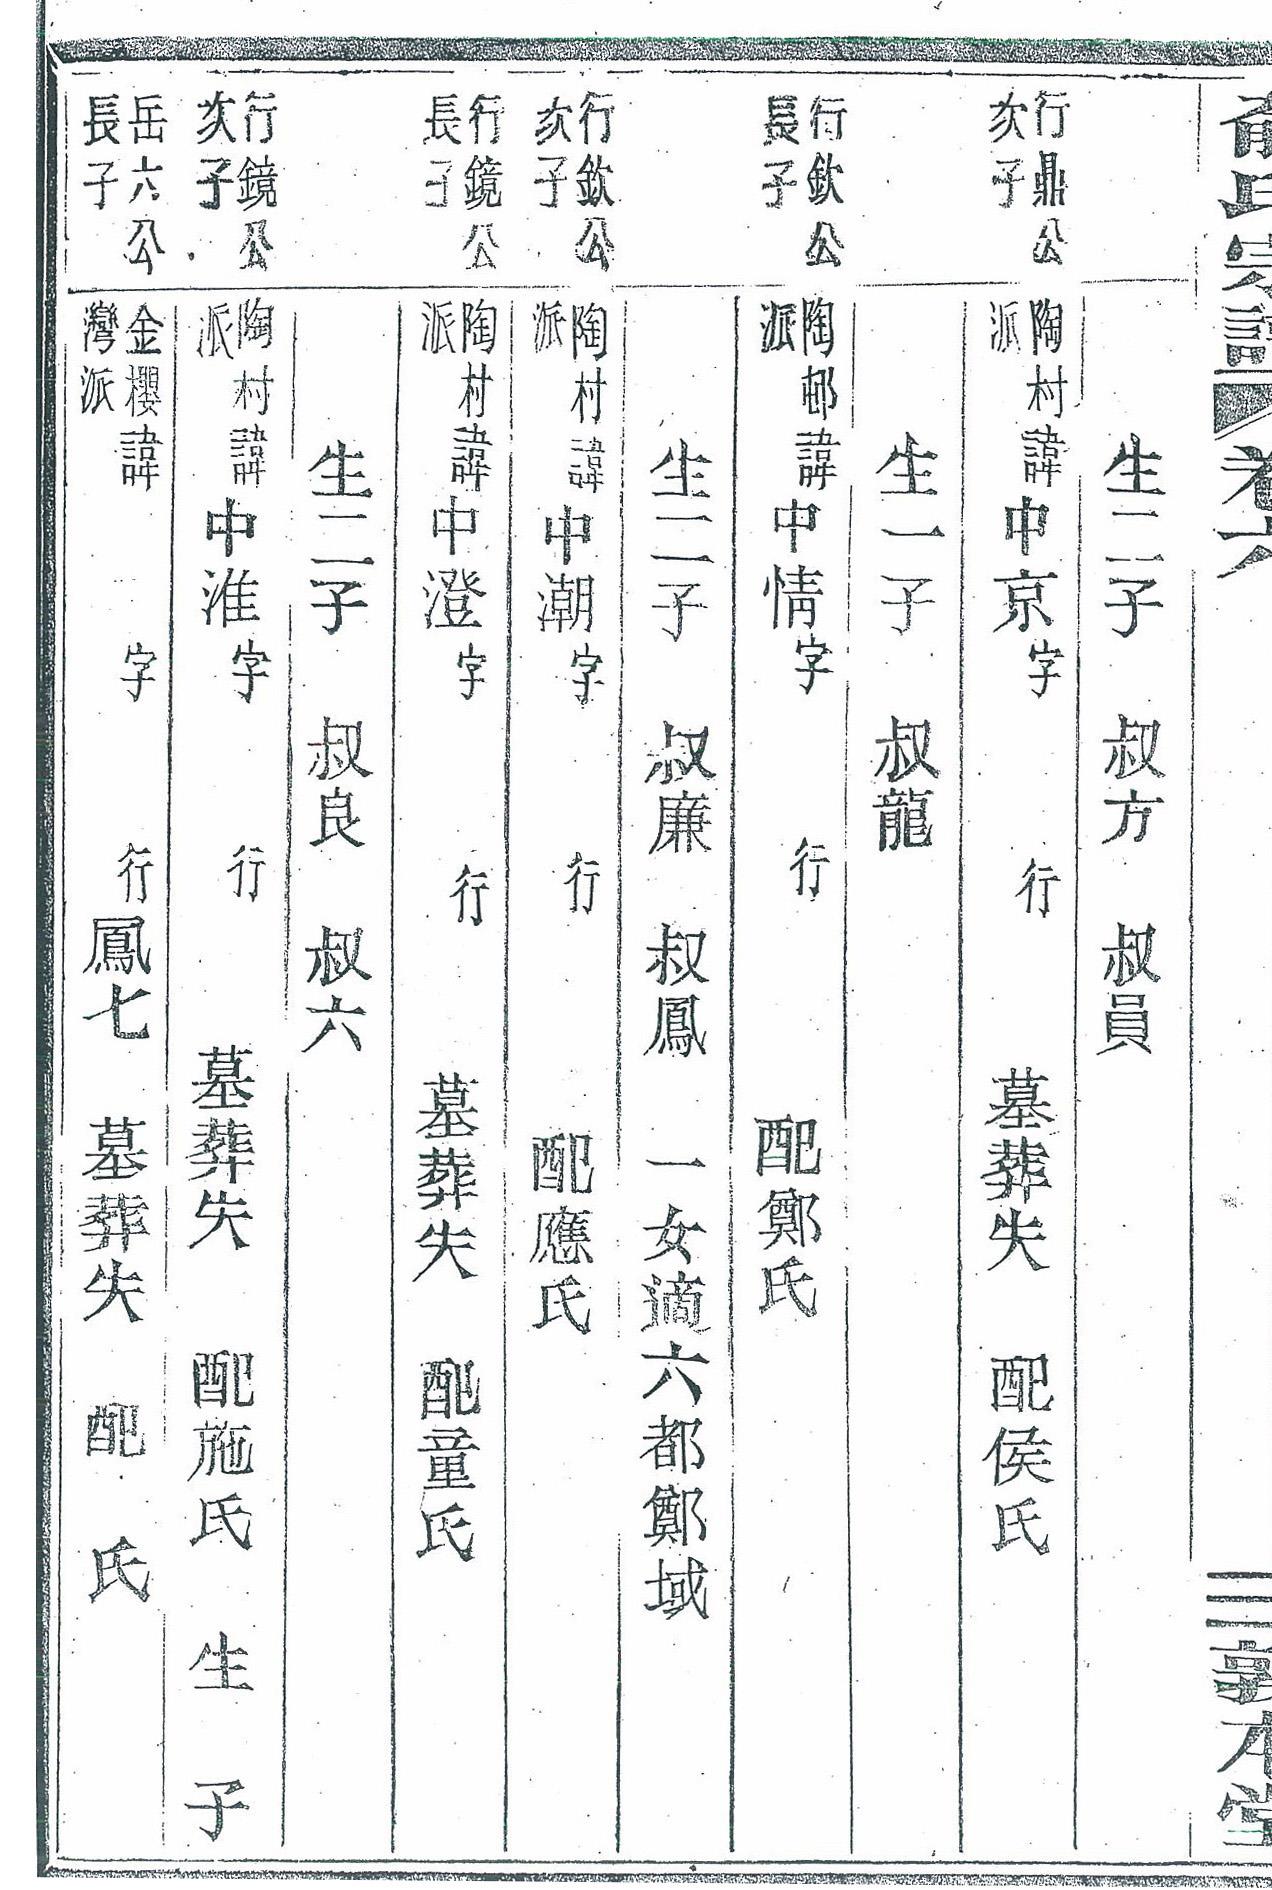 俞氏宗譜 卷六 三 敦本堂
生二子 叔方 叔員
行鼎公
次子
陶村
派
諱中京字 行 墓葬失 配侯氏
生一子 叔龍
行欽公
長子
陶邨
派
諱中情字 行 配鄭氏
生二子 叔廉 叔鳳 一女適六都鄭域
行欽公
次子
陶村
派
諱中潮字 行 配應氏
行鏡公
長子
陶村
派
諱中澄字 行 墓葬失 配童氏
生二子 叔良 叔六
行鏡公
次子
陶村
派
諱中淮字 行 墓葬失 配施氏 生 子
岳六公
長子
金櫻
灣派
諱 字 行鳳七 墓葬失 配 氏